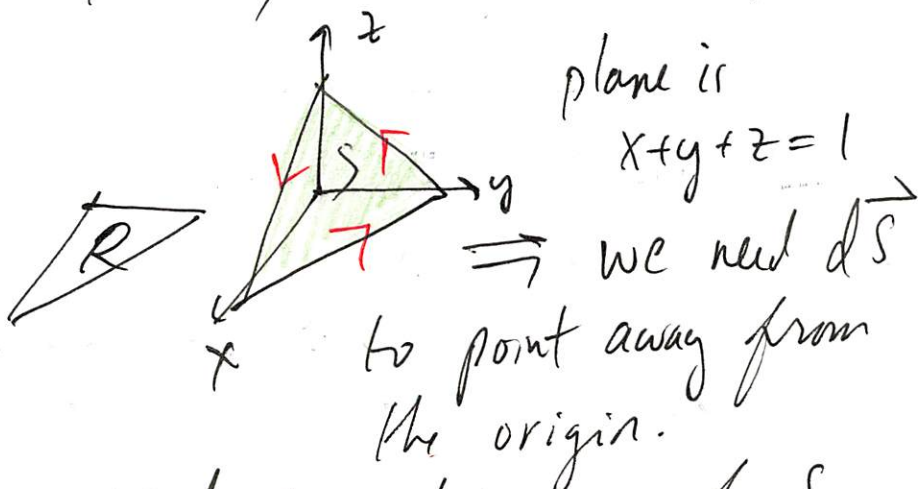 z
plane is
x+y+z=1
S
y
R
⇒ we need dS⃗
x
to point away from
the origin.